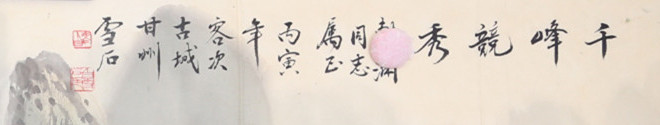 千峰競秀
同志
属正
丙寅
年
客次
古城
甘州
雪石